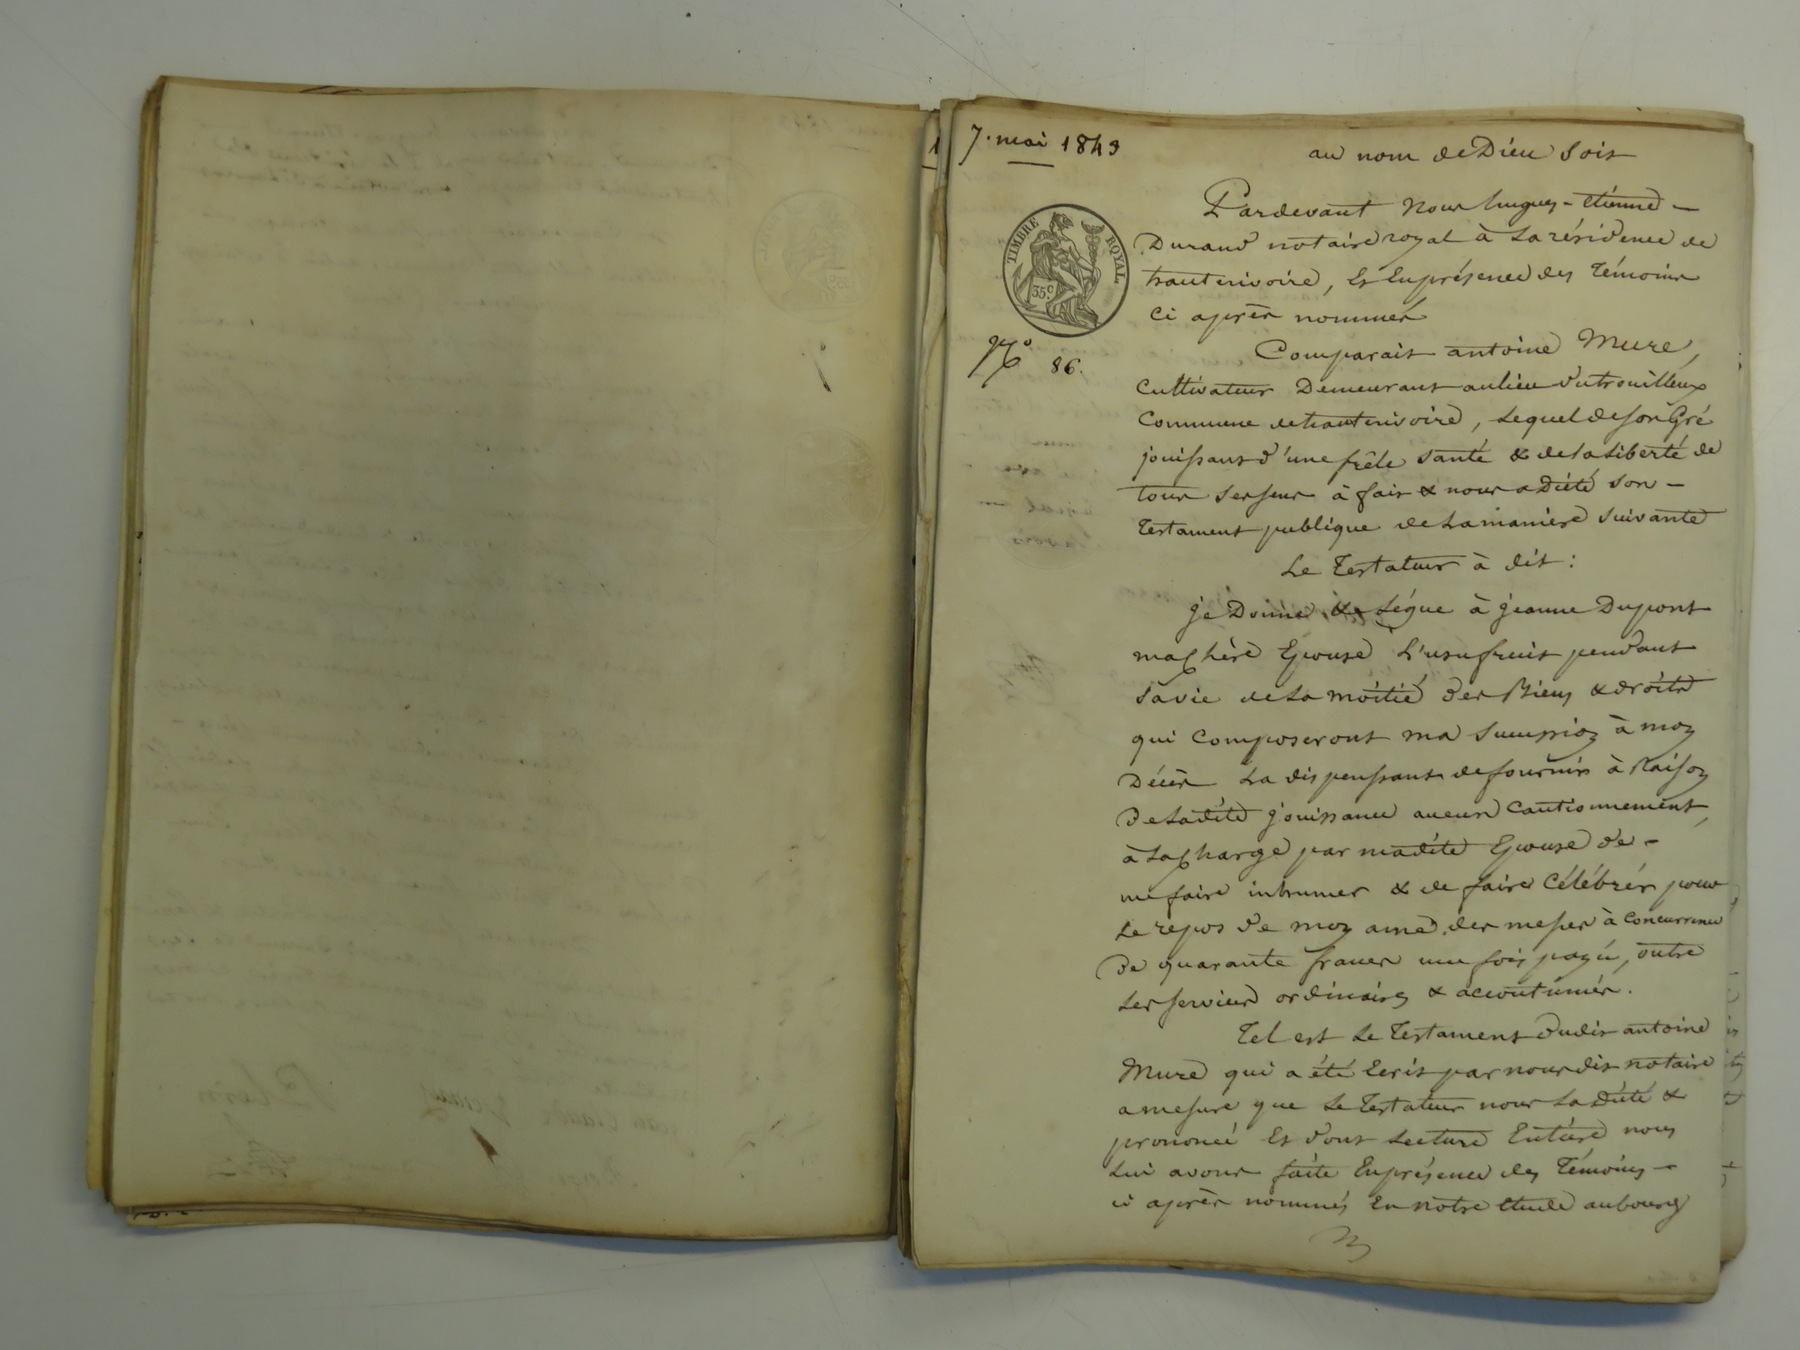 7. mai 1843
au nom de Dieu soit
Pardevant Nous hugues-etienne -
Durand notaire royal à la résidence de
hauterivoire, Et En présence des Témoins
ci après nommés
TIMBRE ROYAL
35c
No 86.
Comparait antoine Mure,
Cultivateur Demeurant au lieu
Commune de hauterivoire, Lequel de son Gré
jouissant d'une frêle santé & de la Liberté de
tous ses sens à fait & nous a Dicté son -
Testament publique de la maniere suivante
Le Testateur à dit :
je Donne & Légue à jeanne Dupont
ma Chère Epouse L'usufruit pendant
sa vie de la moitié des Biens & droits
qui Composeront ma Succession à mon
Décès La dispensant de fournir à Raison
De Ladite jouissance aucun Cautionnement,
à la Charge par madite Epouse de -
me faire inhumer & de faire Célébrer pour
Le repos de mon ame des messes à Concurrence
De quarante francs une fois payé, outre
Les services ordinaires & accoutumés.
Tel est Le Testament dudit antoine
Mure qui a été Ecrit par nous dit notaire
a mesure que Le Testateur nous La Dicté &
prononcé Et dont Lecture Entiere nous
Lui avons faite En présence des Témoins -
ci après nommés En notre étude au bourg